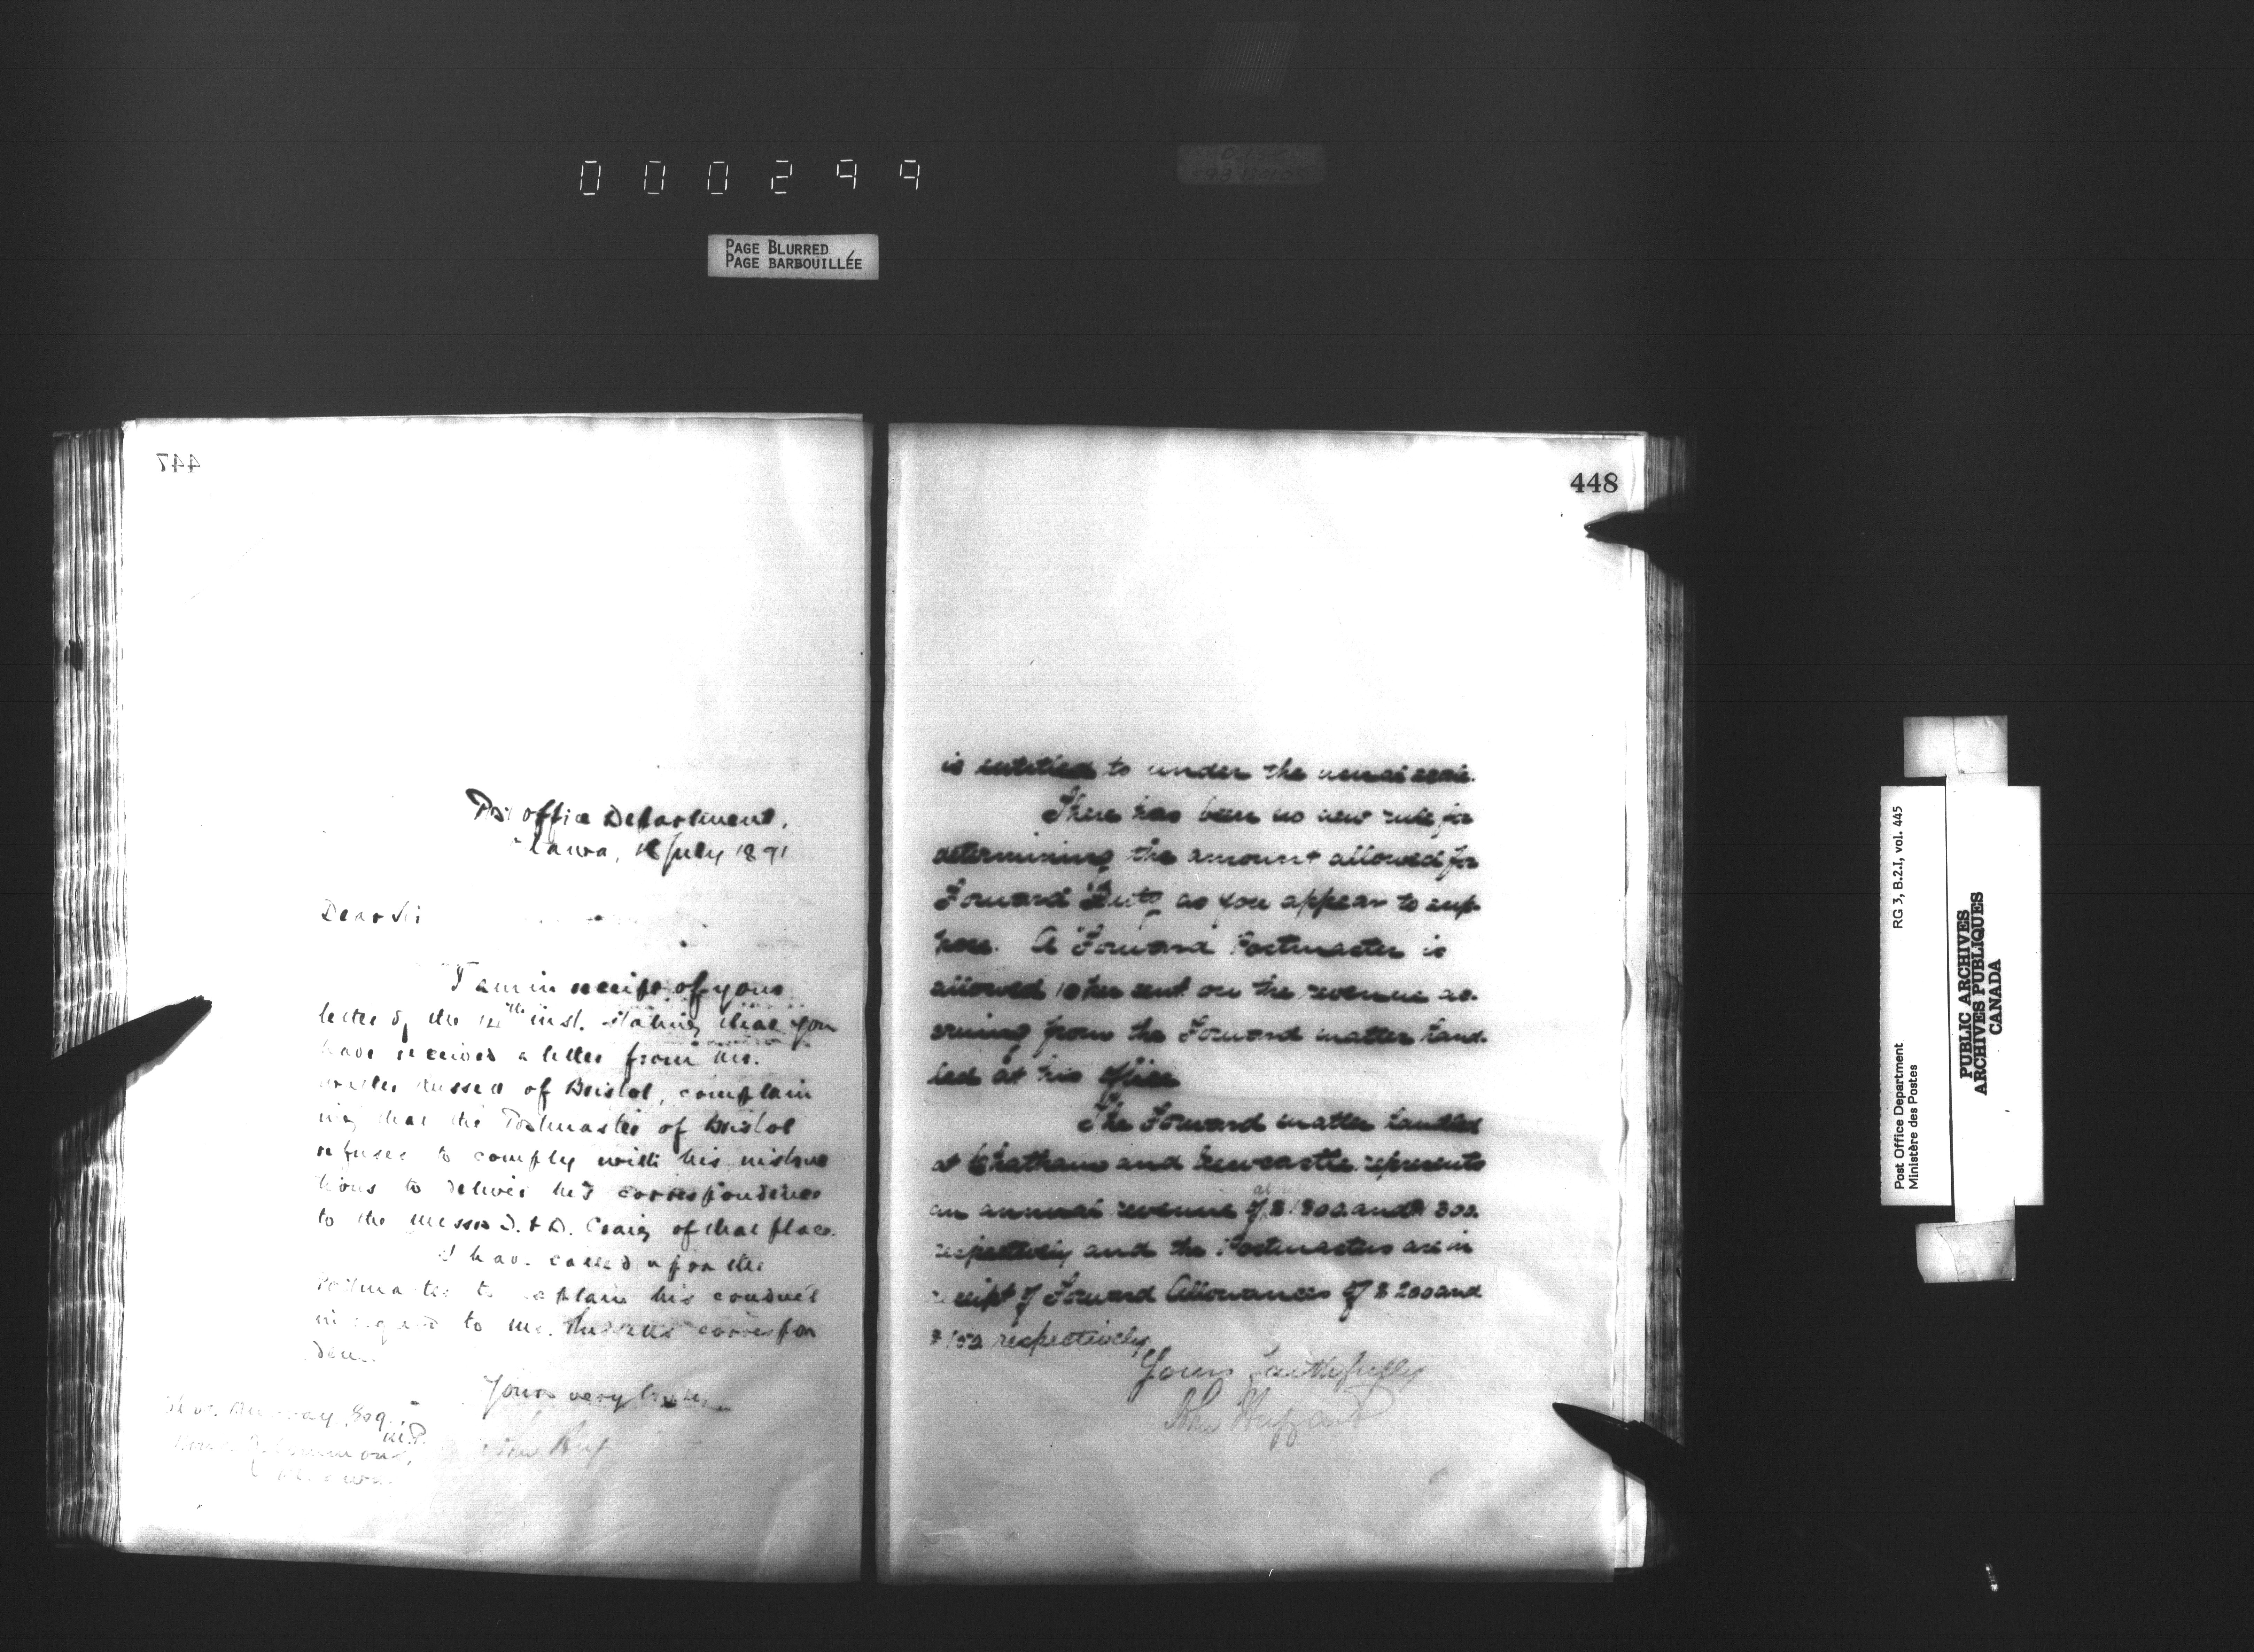 000299
PAGE BLURRED
PAGE BARBOUILLÉE
447
Post office Department,
Ottawa, July 1891
Dear Sir
I am in receipt of your
letter of the 14th inst. stating that you
have received a letter from Mr.
Russell of Bristol, complain
ing that the Postmaster of Bristol
refuses to comply with his instruc
tions to deliver his correspondence
to the Messrs D. & D. Craig of that place.
I have called upon the
Postmaster to explain his conduct
in regard to Mr. Russell's correspon
dence
Yours very truly
Murray Esq.,
M.P.
House of Commons,
Ottawa.
John
448
is entitled to under the usual scale.
There has been no new rule for
determining the amount allowed for
Forward Duty as you appear to sup-
pose. A Forward Postmaster is
allowed 10 per cent on the revenue ac-
cruing from the Forward matter hand-
led at his office
The Forward matter handled
at Chatham and Newcastle represents
an annual revenue of $1800 and $ 800.
respectively and the Postmasters are in
receipt of Forward Allowances of $200 and
$150 respectively.
Yours faithfully
John Haggart
Post Office Department
Ministère des Postes
RG 3, B.2.I, vol. 445
PUBLIC ARCHIVES
ARCHIVES PUBLIQUES
CANADA